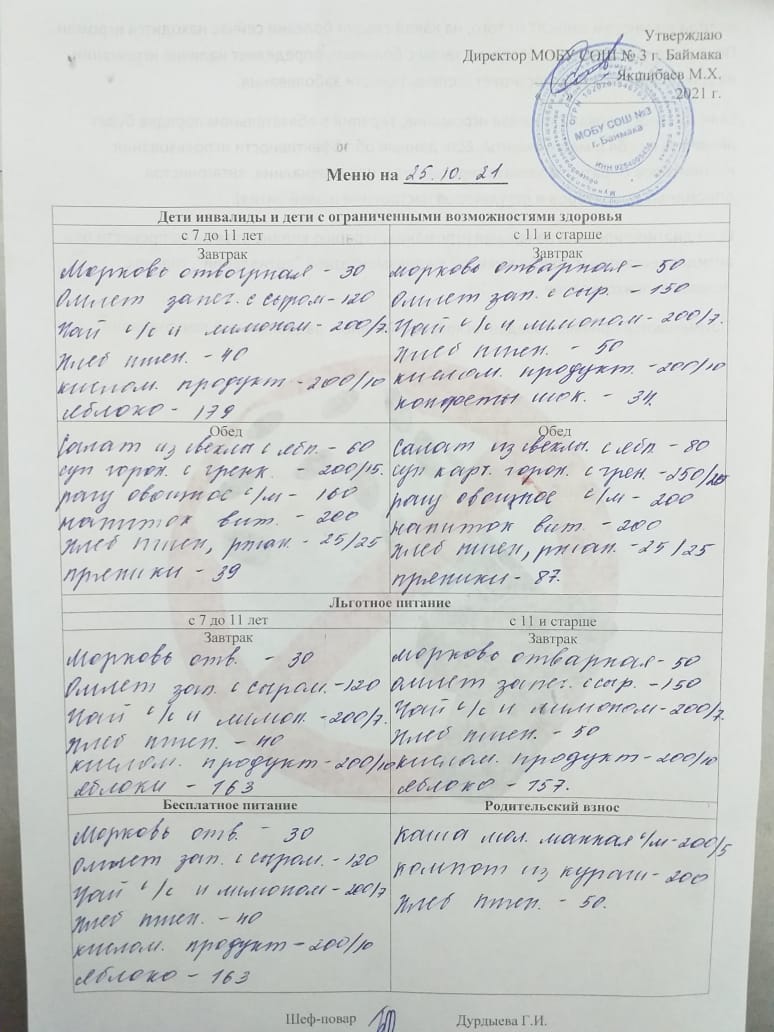 Утверждаю
Директор МОБУ СОШ № 3 г. Баймака
Якшибаев М.Х.
2021 г.
МОБУ СОШ №3
г. Баймака
Меню на 25.10.21
Дети инвалиды и дети с ограниченными возможностями здоровья
с 7 до 11 лет
Завтрак
Морковь отварная - 30
Омлет запеч. с сыром - 120
Чай с/с и лимоном - 200/7.
Хлеб пшен. - 40
кислом. продукт - 200/10
яблоко - 179
с 11 и старше
Завтрак
морковь отварная - 50
Омлет зап. с сыр. - 150
Чай с/с и лимоном - 200/7.
Хлеб пшен. - 50
кислом. продукт. - 200/10
конфеты шок. - 34.
Обед
Салат из свеклы с ябл. - 60
суп горох. с гренк. - 200/15.
рагу овощное с/м - 160
напиток вит. - 200
Хлеб пшен, ржан. - 25/25
пряники - 39
Обед
Салат из свеклы. с ябл - 80
суп карт. горох. с грен. - 250/
рагу овощное с/м - 200
напиток вит. - 200
Хлеб пшен, ржан. - 25/25
пряники - 87.
Льготное питание
с 7 до 11 лет
Завтрак
Морковь отв. - 30
Омлет зап. с сыром. - 120
Чай с/с и лимон. - 200/7.
Хлеб пшен. - 40
кислом. продукт - 200/10
яблоки - 163
с 11 и старше
Завтрак
морковь отварная - 50
омлет запеч. с сыр. - 150
Чай с/с и лимоном - 200/7.
Хлеб пшен. - 50
кислом. продукт - 200/10
яблоко - 157.
Бесплатное питание
Морковь отв. - 30
Омлет зап. с сыром. - 120
Чай с/с и лимоном - 200/7
Хлеб пшен. - 40
кислом. продукт - 200/10
яблоко - 163
Родительский взнос
каша мол. манная с/м - 200/5
компот из кураги - 200
Хлеб пшен. - 50.
Шеф-повар Дурдыева Г.И.